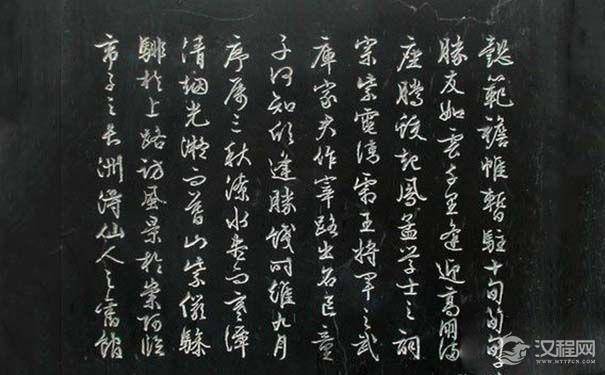 懿範襜帷暫駐十旬
勝友如雲千里逢迎高朋滿
座騰蛟起鳳孟學士之詞
宗紫電清霜王將軍之武
庫家君作宰路出名區童
子何知躬逢勝餞時維九月
序屬三秋潦水盡而寒潭
清烟光凝而暮山紫儼驂
騑於上路訪風景於崇阿臨
帝子之長洲得仙人之舊館
汉程网
WWW.HTTPCN.COM